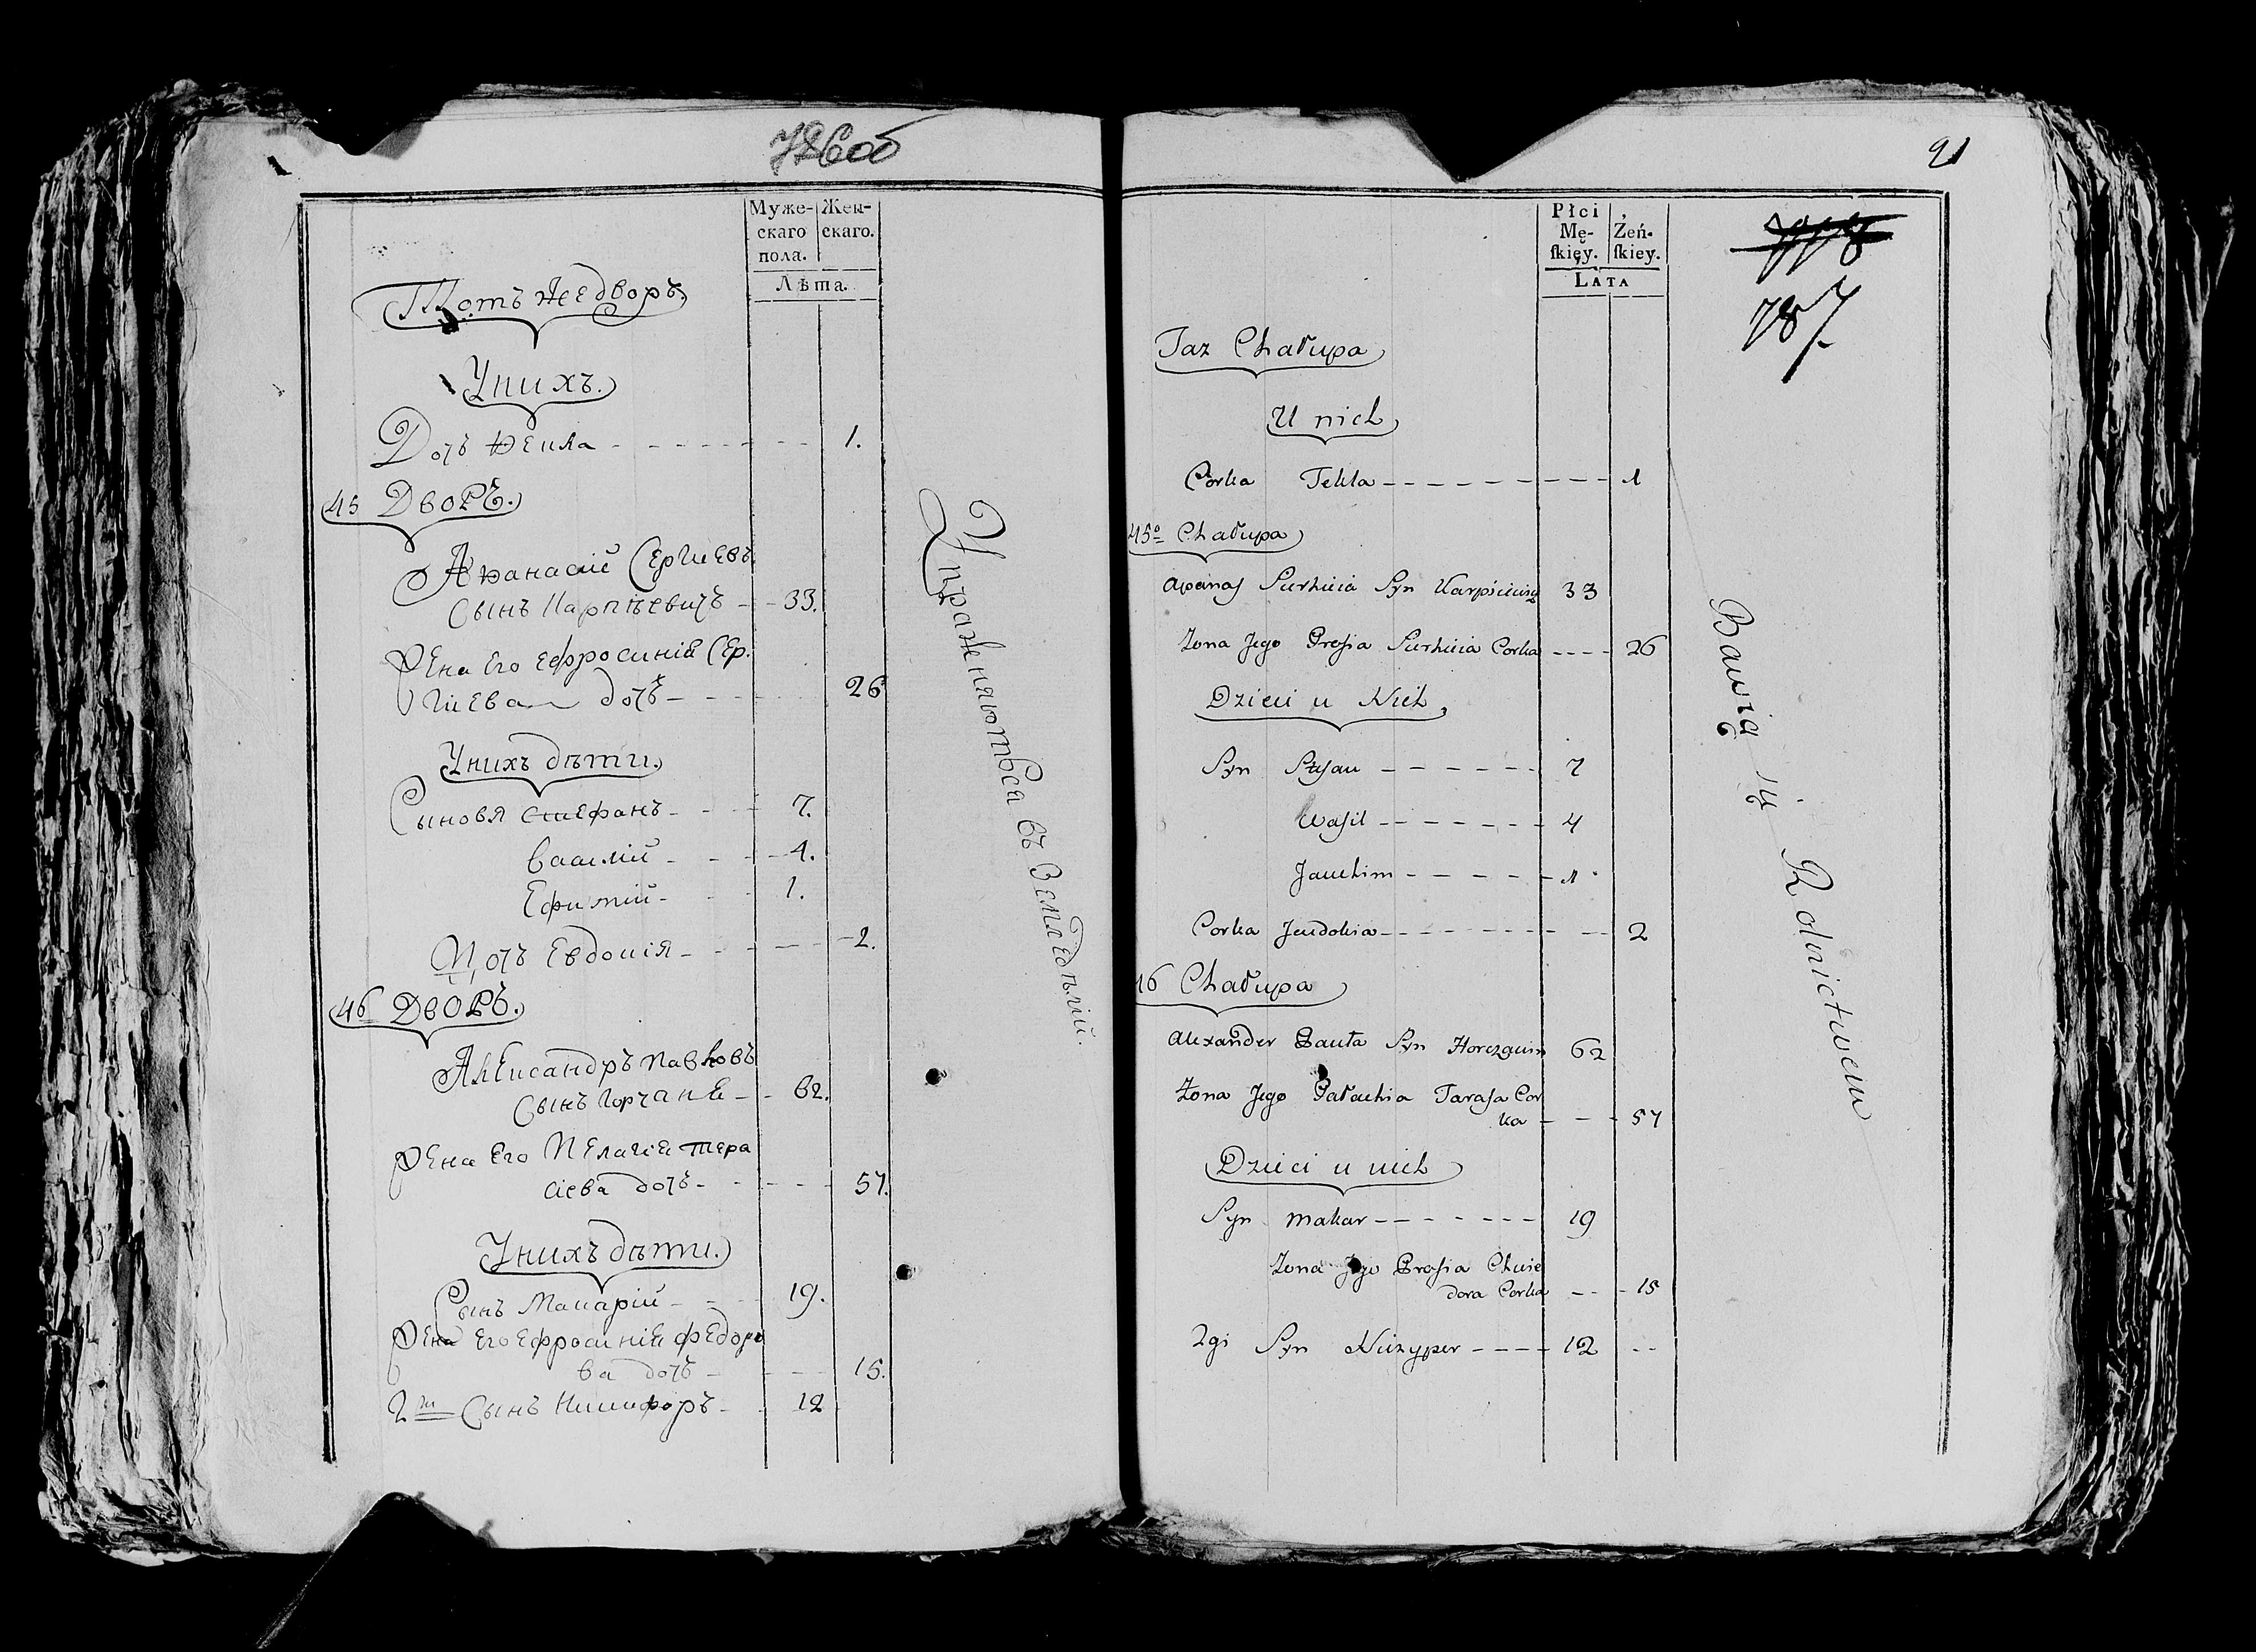 786об
Муже-
скаго
пола.
Жен-
скаго.
Лѣта.
Тотъ же дворъ.
У нихъ.
Дочь Ѳекла - - - 1.
45 Дворъ.
Аѳанасій Сергиевъ
Сынъ Карпѣевичъ - - 33.
Жена Его Ефросинія Сер.
гиева дочь - - - 26
У нихъ дѣти.
Сыновя Стефанъ - - - 7.
Василий - - - 4.
Ефимій - - - 1.
Дочь Евдокія - - - 2.
46 Дворъ.
Александръ Павловъ
Сынъ Горчанъ - - 62.
Жена Его Пелагія Тера
сіева дочь - - - 57.
У нихъ дѣти.
Сынъ Макарій - - - 19.
Жена Его Ефросинія Федоро
ва дочь - - - 15.
2й Сынъ Никифоръ - - 12
Упражняются въ Земледѣлій.
91
787.
Płci
Mę-
ſkięy.
Żeń-
ſkiey.
Lata
Taz Chałupa
U nich
Corka Tekla - - - 1
45º Chałupa
Apanas Serhieia Syn 33
Zona Jego Prosia Serhieia Corka - - - 26
Dzieci u Nich
Syn Stefan - - - 7
Wasil - - - 4
Jauchim - - - 1
Corka Jeudokia - - - 2
46 Chałupa
Alexander Pauła Syn 62
Zona Jego Pałauhia Tarasa Cor
ka - - - 57
Dzieci u nich
Syn Makar - - - 19
Zona Jego Prosia Chwie
dora Corka - - - 15
2gi Syn Niczyper - - - 12 - -
Bawią się Rolnictwem